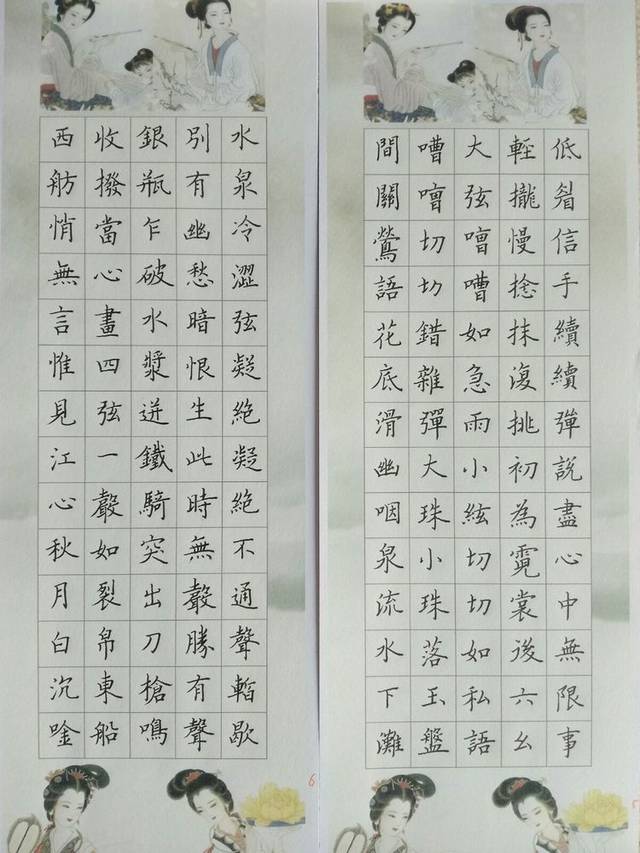 低眉信手續續彈說盡心中無限事
輕攏慢捻抹復挑初為霓裳後六么
大弦嘈嘈如急雨小絃切切如私語
嘈嘈切切錯雜彈大珠小珠落玉盤
間關鶯語花底滑幽咽泉流水下灘
5
水泉冷澀弦凝絕凝絕不通聲暫歇
別有幽愁暗恨生此時無聲勝有聲
銀瓶乍破水漿迸鐵騎突出刀槍鳴
收撥當心畫四弦一聲如裂帛東船
西舫悄無言惟見江心秋月白沉唫
6